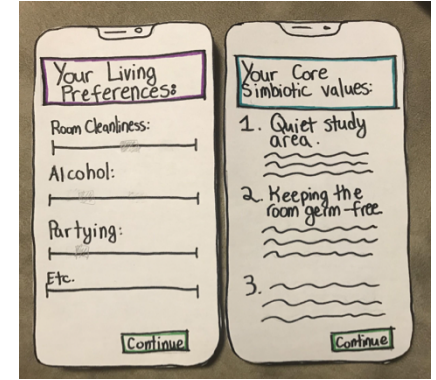 Your Living
Preferences:
Room Cleanliness:
Alcohol:
Partying:
Etc.
Continue
Your Core
Simbiotic values:
1. Quiet study
area.
2. Keeping the
room germ-free
3.
Continue